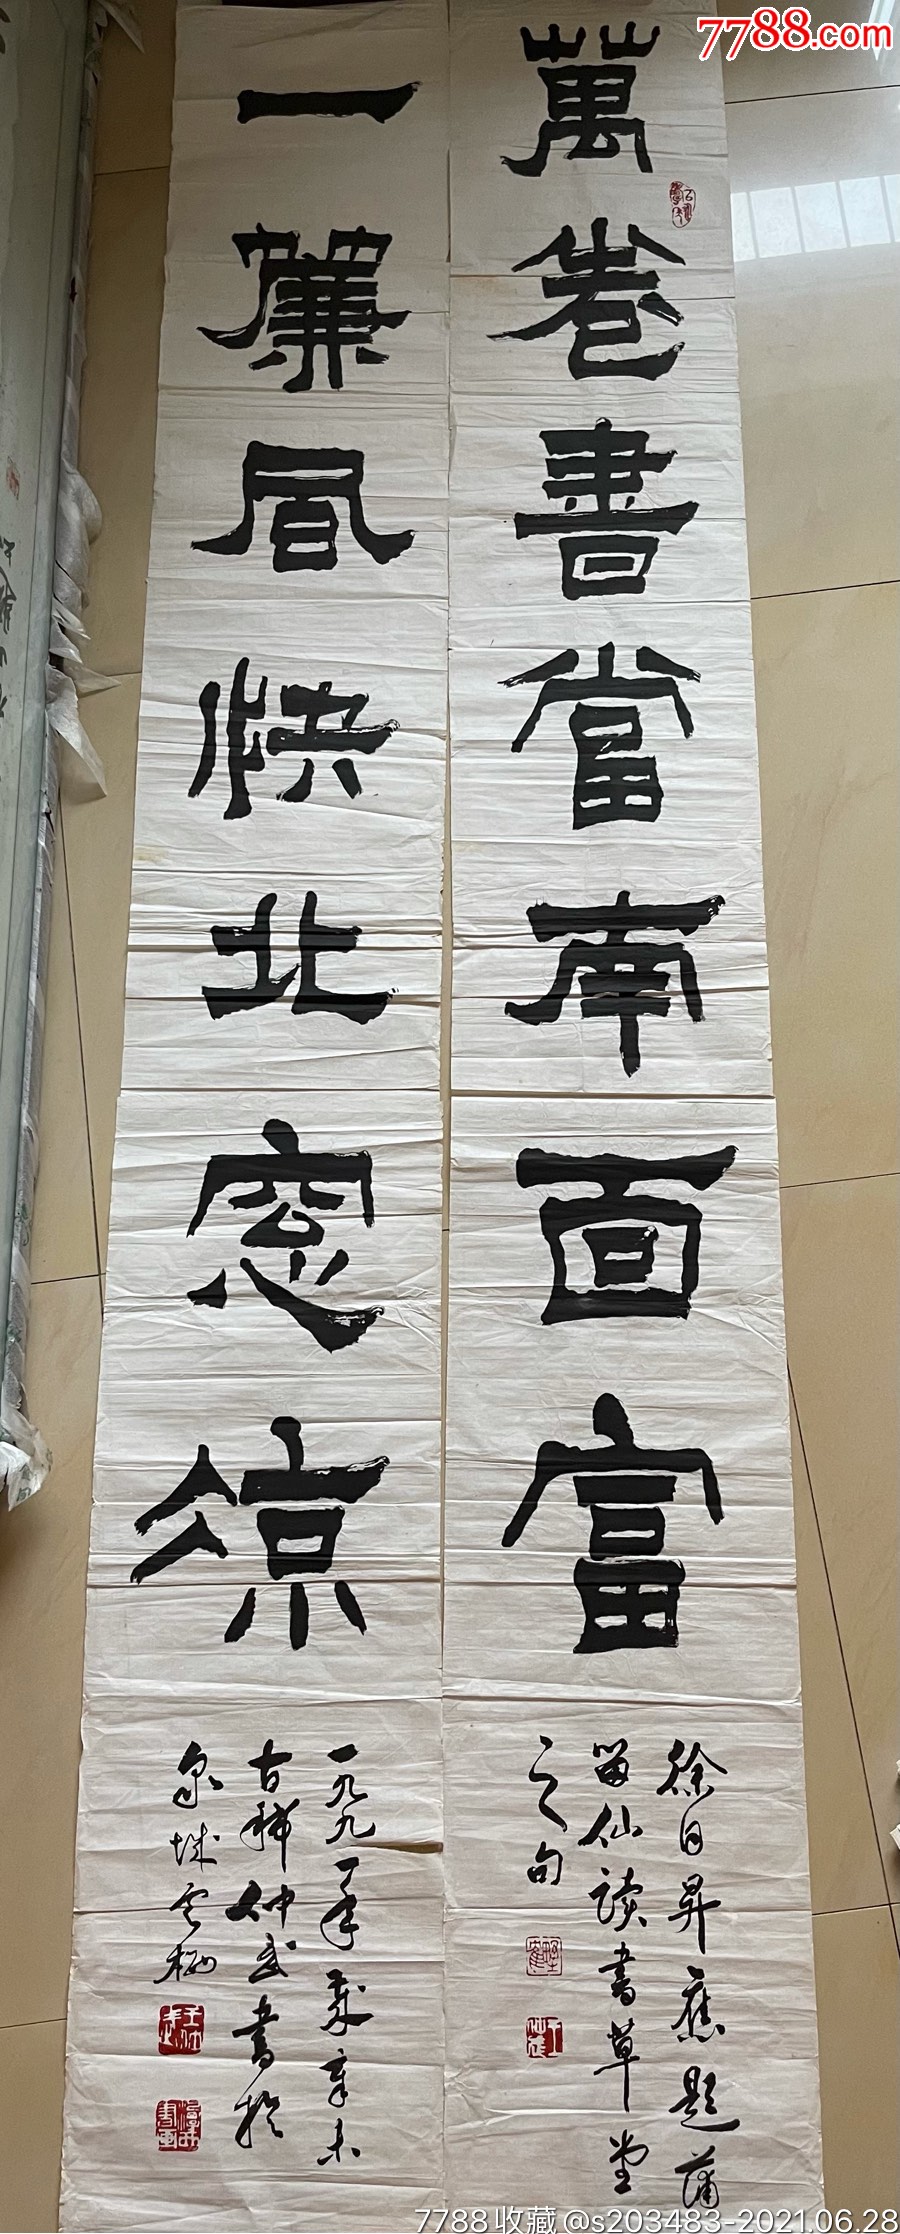 7788.com
萬卷書當南面富
徐日昇應題蒲
留仙读書草堂
之句
一簾風快北窓涼
一九九一年歲辛未
古稀仲武書於
泉城
7788收藏@s203483-2021.06.28